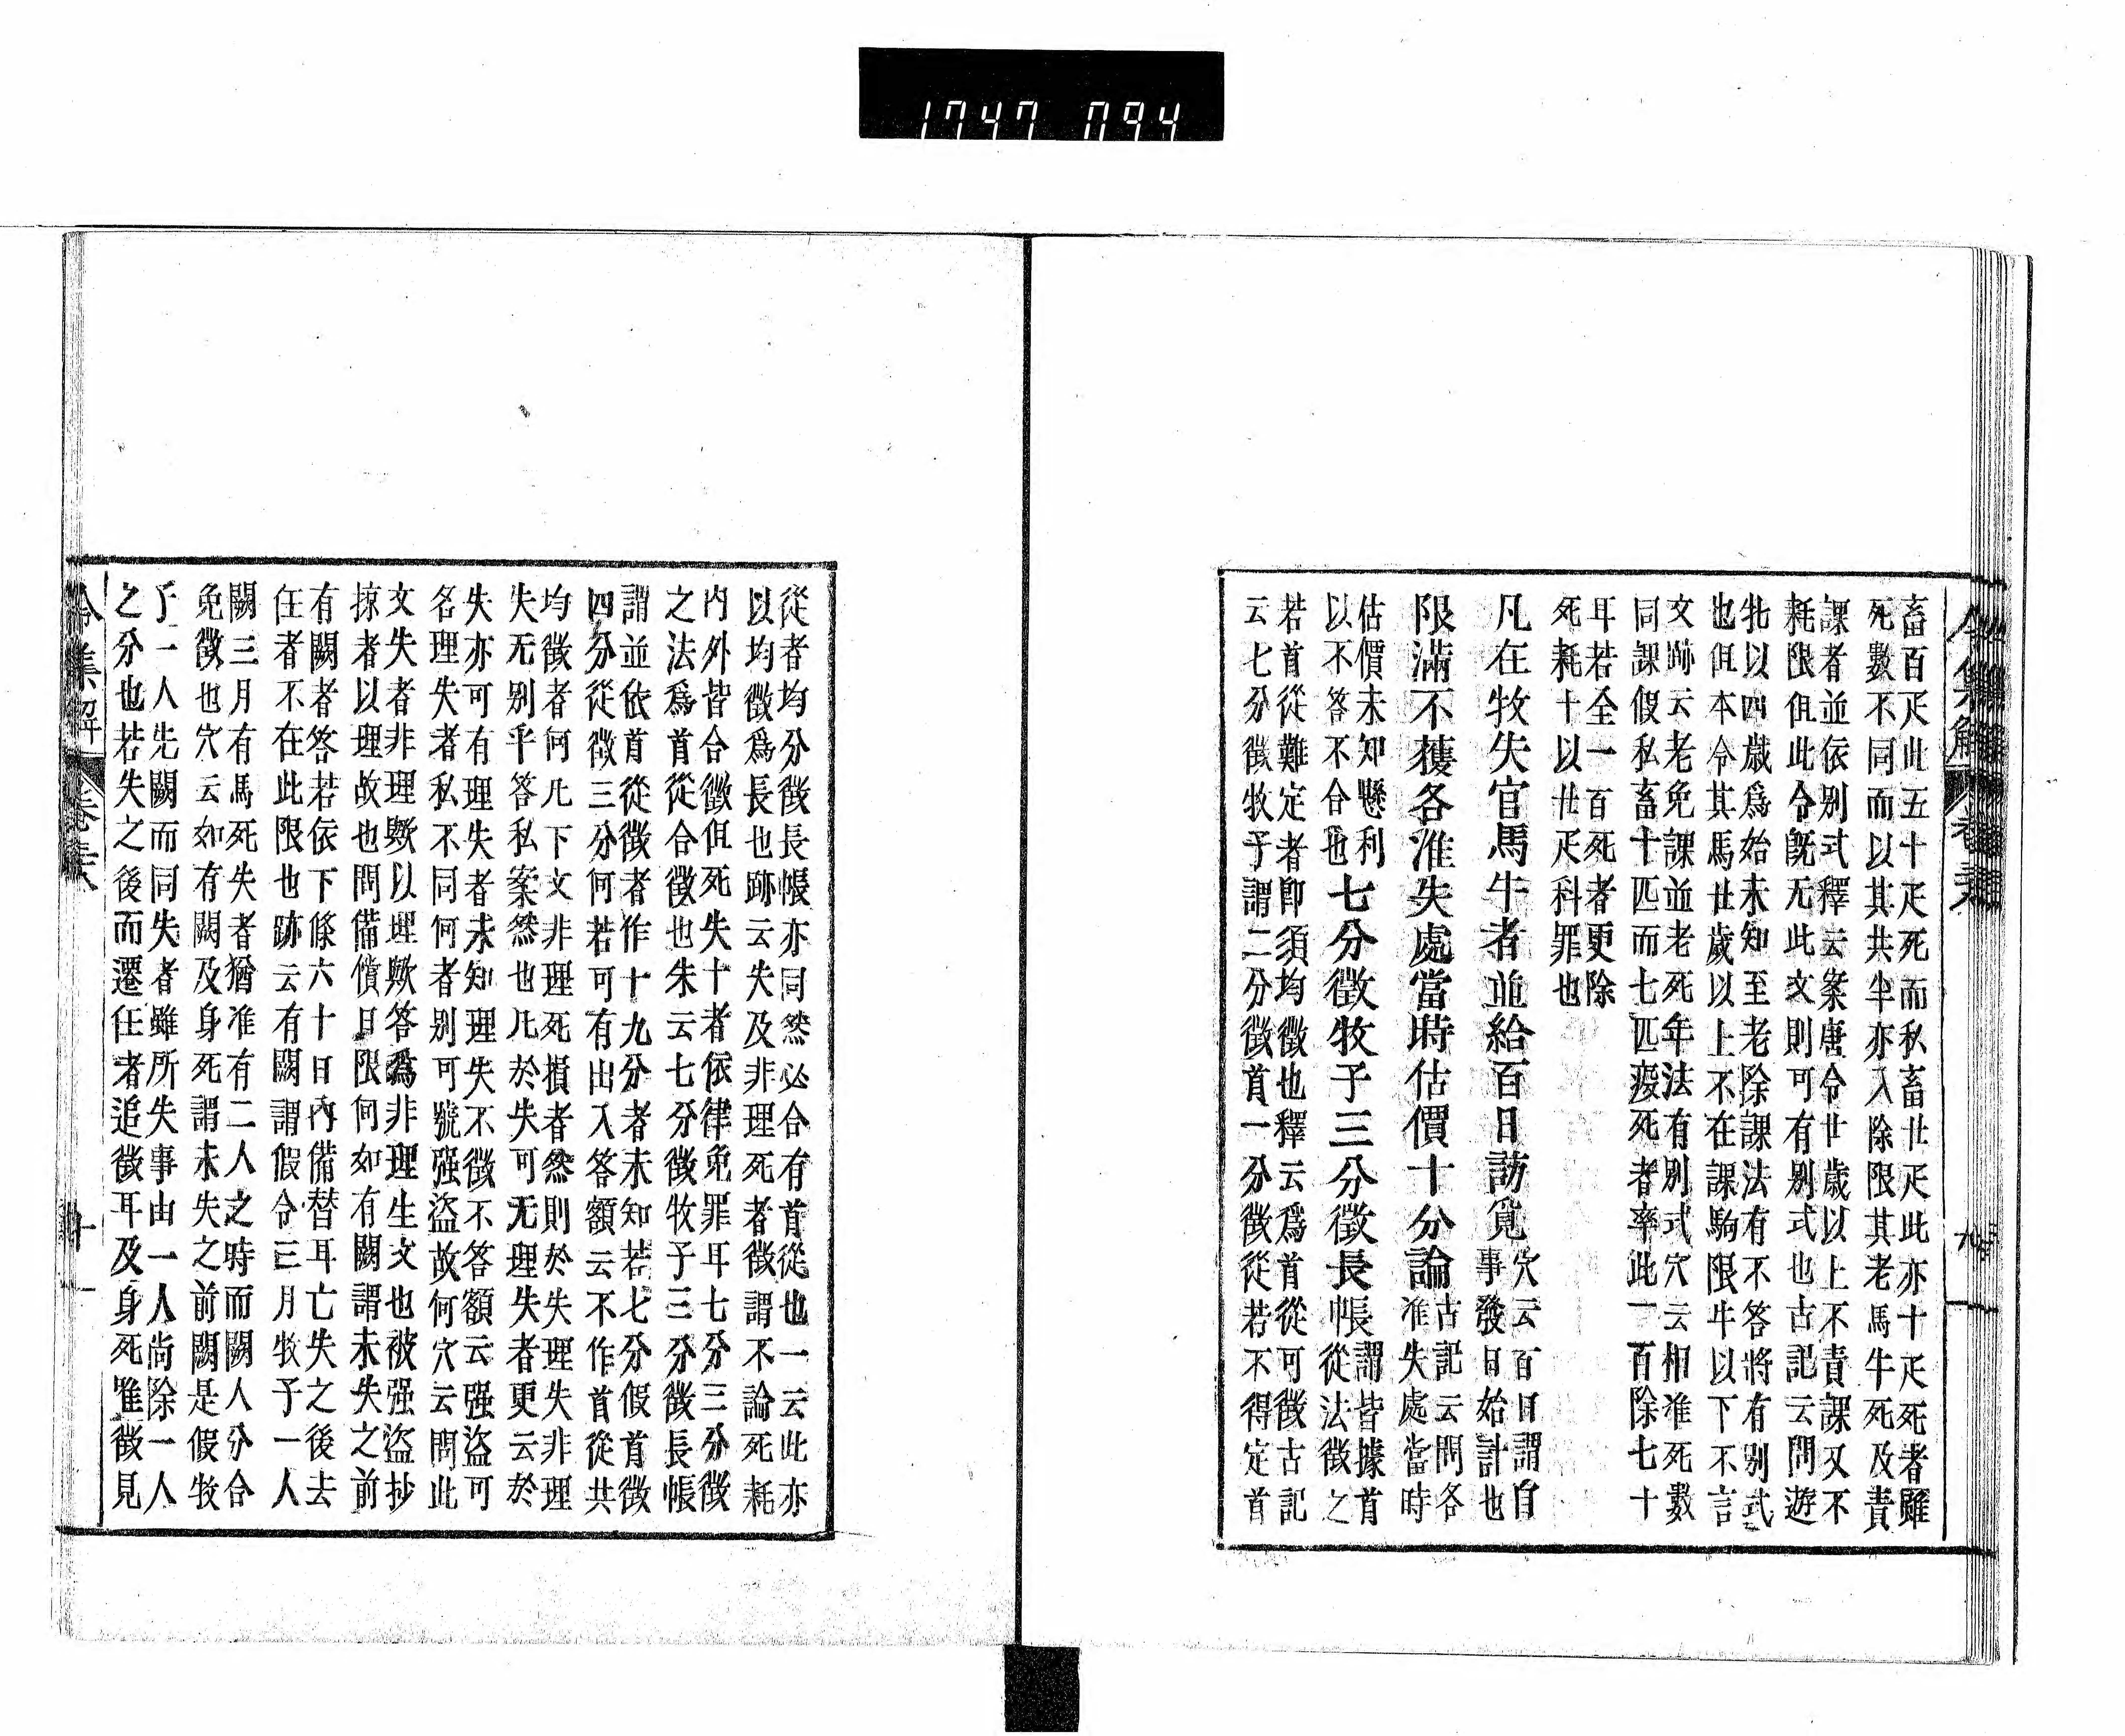 1747 094
令集解 卷
畜百疋此五十疋死而私畜廿疋此亦十疋死者雖
死數不同而以其共半亦入除限其老馬牛死及責
課者並依别式釋云案唐令廿歲以上不責課又不
耗限但此令旣无此文則可有别式也古記云問遊
牝以四歲爲始未知至老除課法有不答將有别式
也但本令其馬廿歲以上不在課駒限牛以下不言
文跡云老免課並老死年法有别式穴云相准死數
同課假私畜十匹而七匹疫死者率此一百除七十
耳若全一百死者更除
死耗十以廿疋科罪也
凡在牧失官馬牛者並給百日訪覓穴云百日謂自
事發日始計也
限滿不獲各准失處當時估價十分論古記云問各
准失處當時
估價未知懸利
以不答不合也七分徵牧子三分徵長帳謂皆據首
從法徵之
若首從難定者卽須均徵也釋云爲首從可徵古記
云七分徵牧子謂二分徵首一分徵從若不得定首
從者均分徵長帳亦同然必合有首從也一云此亦
以均徵爲長也跡云失及非理死者徵謂不論死耗
内外皆合徵但死失十者依律免罪耳七分三分徵
之法爲首從合徵也朱云七分徵牧子三分徵長帳
謂並依首從徵者作十九分者未知若七分假首徵
四分從徵三分何若可有出入答額云不作首從共
均徵者何凡下文非理死損者然則於失理失非理
失无别乎答私案然也凡於失可无理失者更云於
失亦可有理失者未知理失不徵不答額云强盜可
名理失者私不同何者别可號强盜故何穴云問此
文失者非理歟以理歟答爲非理生文也被强盜抄
掠者以理故也問備償日限何如有闕謂未失之前
有闕者答若依下條六十日內備替耳亡失之後去
任者不在此限也跡云有闕謂假令三月牧子一人
闕三月有馬死失者猶准有二人之時而闕人分合
免徵也穴云如有闕及身死謂未失之前闕是假牧
子一人先闕而同失者雖所失事由一人尚除一人
之分也若失之後而遷任者追徵耳及身死唯徵見
令集解 卷 十一